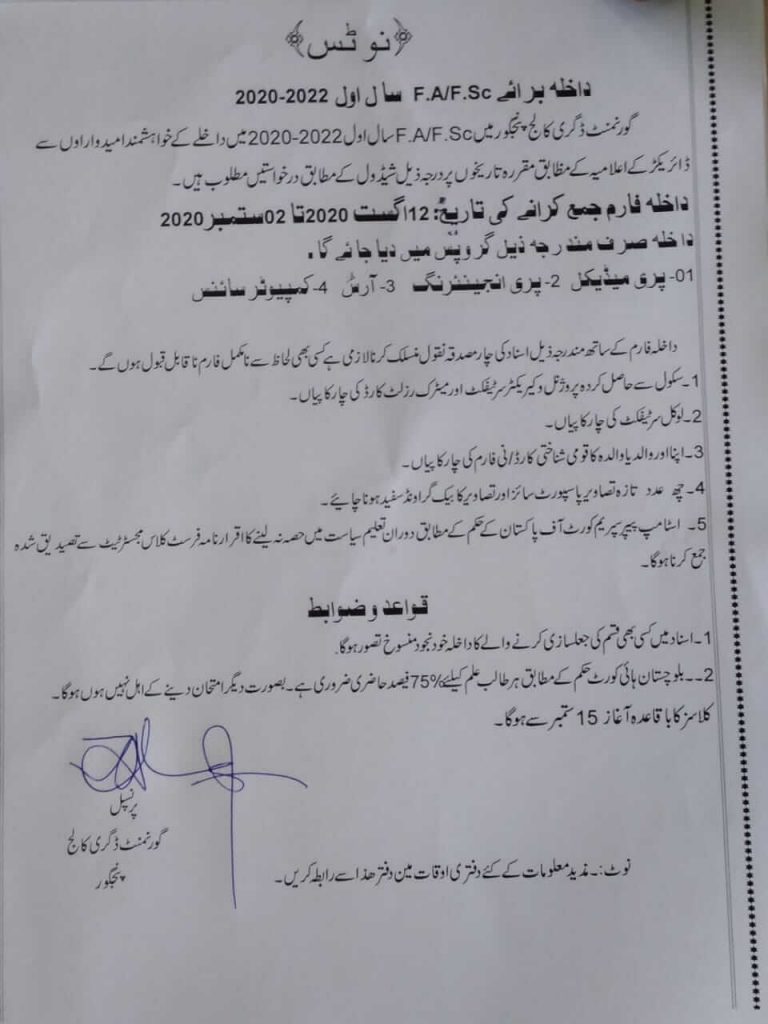 ﴿نوٹس﴾
داخلہ برائے F.A/F.Sc سال اول 2020-2022
گورنمنٹ ڈگری کالج پنجگور میں F.A/F.Sc سال اول 2020-2022 میں داخلے کے خواہشمند امیدواراوں سے
ڈائریکٹر کے اعلامیہ کے مطابق مقررہ تاریخوں پر درجہ ذیل شیڈول کے مطابق درخواستیں مطلوب ہیں۔
داخلہ فارم جمع کرانے کی تاریخ: 12 اگست 2020 تا 02 ستمبر 2020
داخلہ صرف مندرجہ ذیل گروپس میں دیا جائے گا۔
01- پری میڈیکل 2- پری انجینئرنگ 3- آرٹس 4- کمپیوٹر سائنس
داخلہ فارم کے ساتھ مندرجہ ذیل اسناد کی چار مصدقہ نقول منسلک کرنا لازمی ہے کسی بھی لحاظ سے نامکمل فارم ناقابل قبول ہوں گے۔
1۔ سکول سے حاصل کردہ پروژنل و کیریکٹر سرٹیفکٹ اور میٹرک رزلٹ کارڈ کی چار کاپیاں۔
2۔ لوکل سرٹیفکٹ کی چار کاپیاں۔
3۔ اپنا اور والد یا والدہ کا قومی شناختی کارڈ/بی فارم کی چار کاپیاں۔
4۔ چھ عدد تازہ تصاویر پاسپورٹ سائز اور تصاویر کا بیک گراونڈ سفید ہونا چایئے۔
5۔ اسٹامپ پیپر سپریم کورٹ آف پاکستان کے حکم کے مطابق دوران تعلیم سیاست میں حصہ نہ لینے کا اقرار نامہ فرسٹ کلاس مجسٹرٹیٹ سے تصیدیق شدہ
جمع کرنا ہوگا۔
قواعد و ضوابط
1۔ اسناد میں کسی بھی قسم کی جعلسازی کرنے والے کا داخلہ خودبخود منسوخ تصور ہوگا۔
2۔۔ بلوچستان ہائی کورٹ حکم کے مطابق ہر طالب علم کیلئے 75% فیصد حاضری ضروری ہے۔ بصورت دیگر امتحان دینے کے اہل نہیں ہوں ہوگا۔
کلاسز کا باقاعدہ آغاز 15 ستمبر سے ہوگا۔
پرنسپل
گورنمنٹ ڈگری کالج
پنجگور
نوٹ:۔ مذید معلومات کے کئے دفتری اوقات مین دفتر ھذا سے رابطہ کریں۔